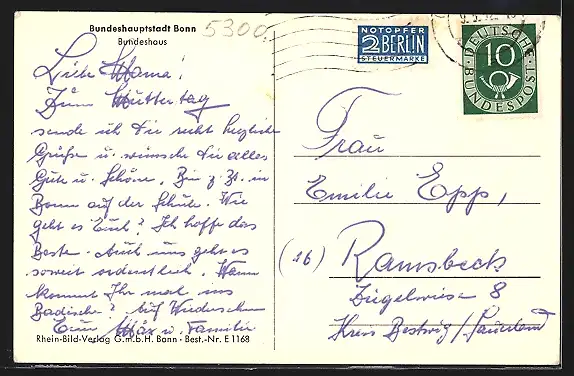 Bundeshauptstadt Bonn
Bundeshaus
5300
Liebe Mama!
Zum Muttertag
sende ich Dir recht herzliche
Grüße u. wünsche Dir alles
Gute u. Schöne. Bin z. Zt. in
Bonn auf der Schule. Wie
geht es Euch? Ich hoffe das
Beste. Auch uns geht es
soweit ordentlich. Wann
kommt Ihr mal ins
Badische? Auf Wiedersehen
Euer Max u. Familie
Rhein-Bild-Verlag G.m.b.H. Bonn - Best.-Nr. E 1168
NOTOPFER
2 BERLIN
STEUERMARKE
DEUTSCHE
10
BUNDESPOST
Frau
Emilie Epp,
(16) Ramsbeck
Ziegelwiese 8
Kreis Bestwig/Sauerland